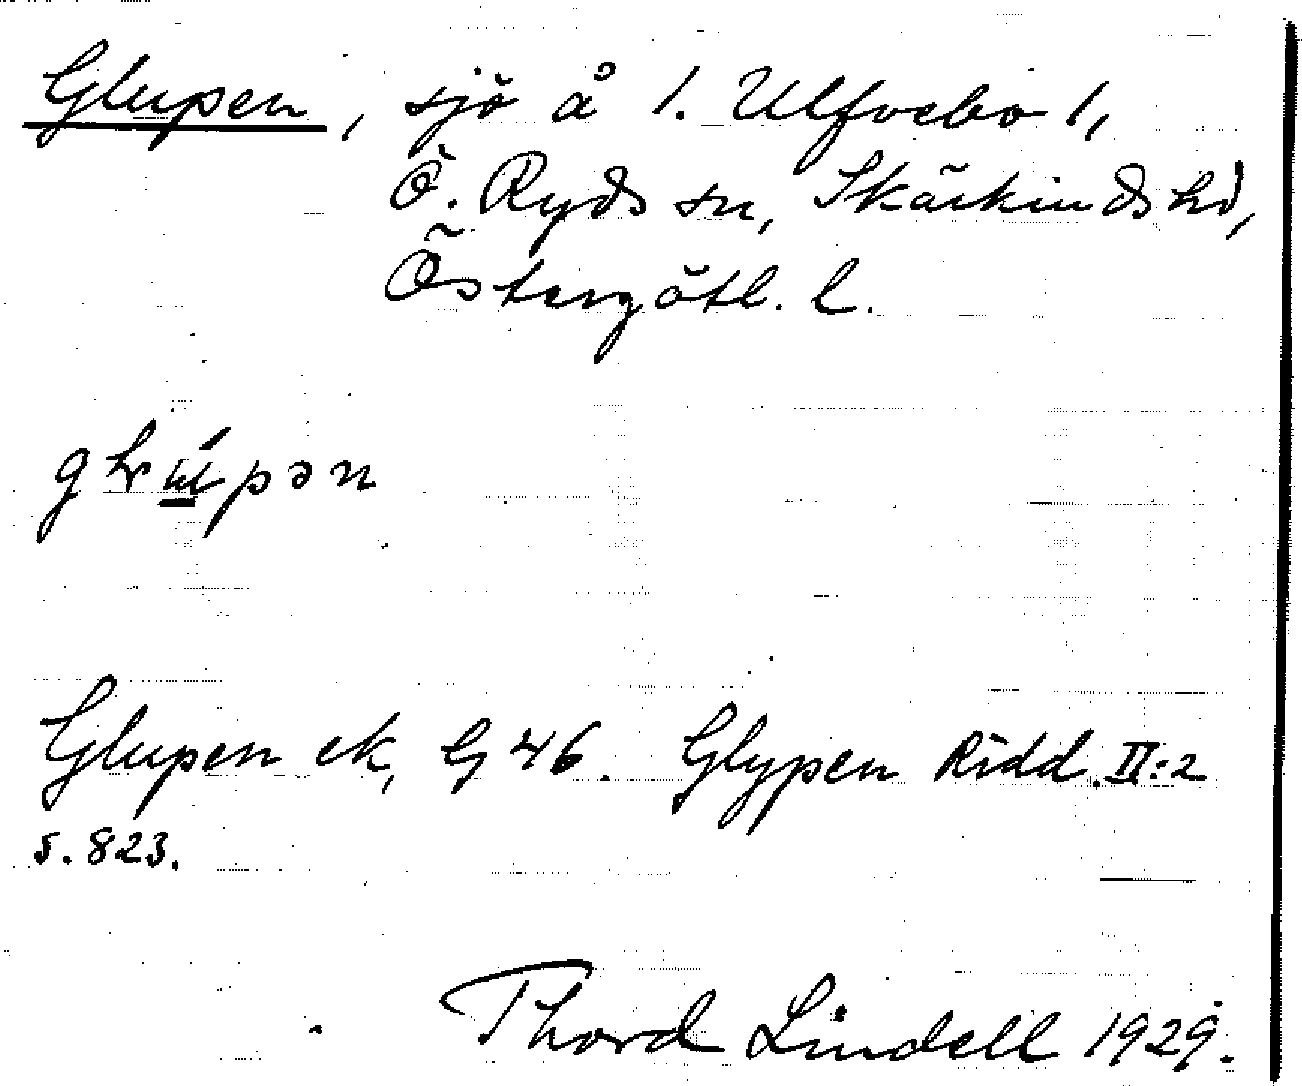 Glupen, sjö å 1. Ulfvebo 1,
Ö. Ryds sn, Skärkinds hd,
Östergötl. l.
Glupen ek, G 46. Glypen Ridd. II:2
s. 823.
Thord Lindell 1929.